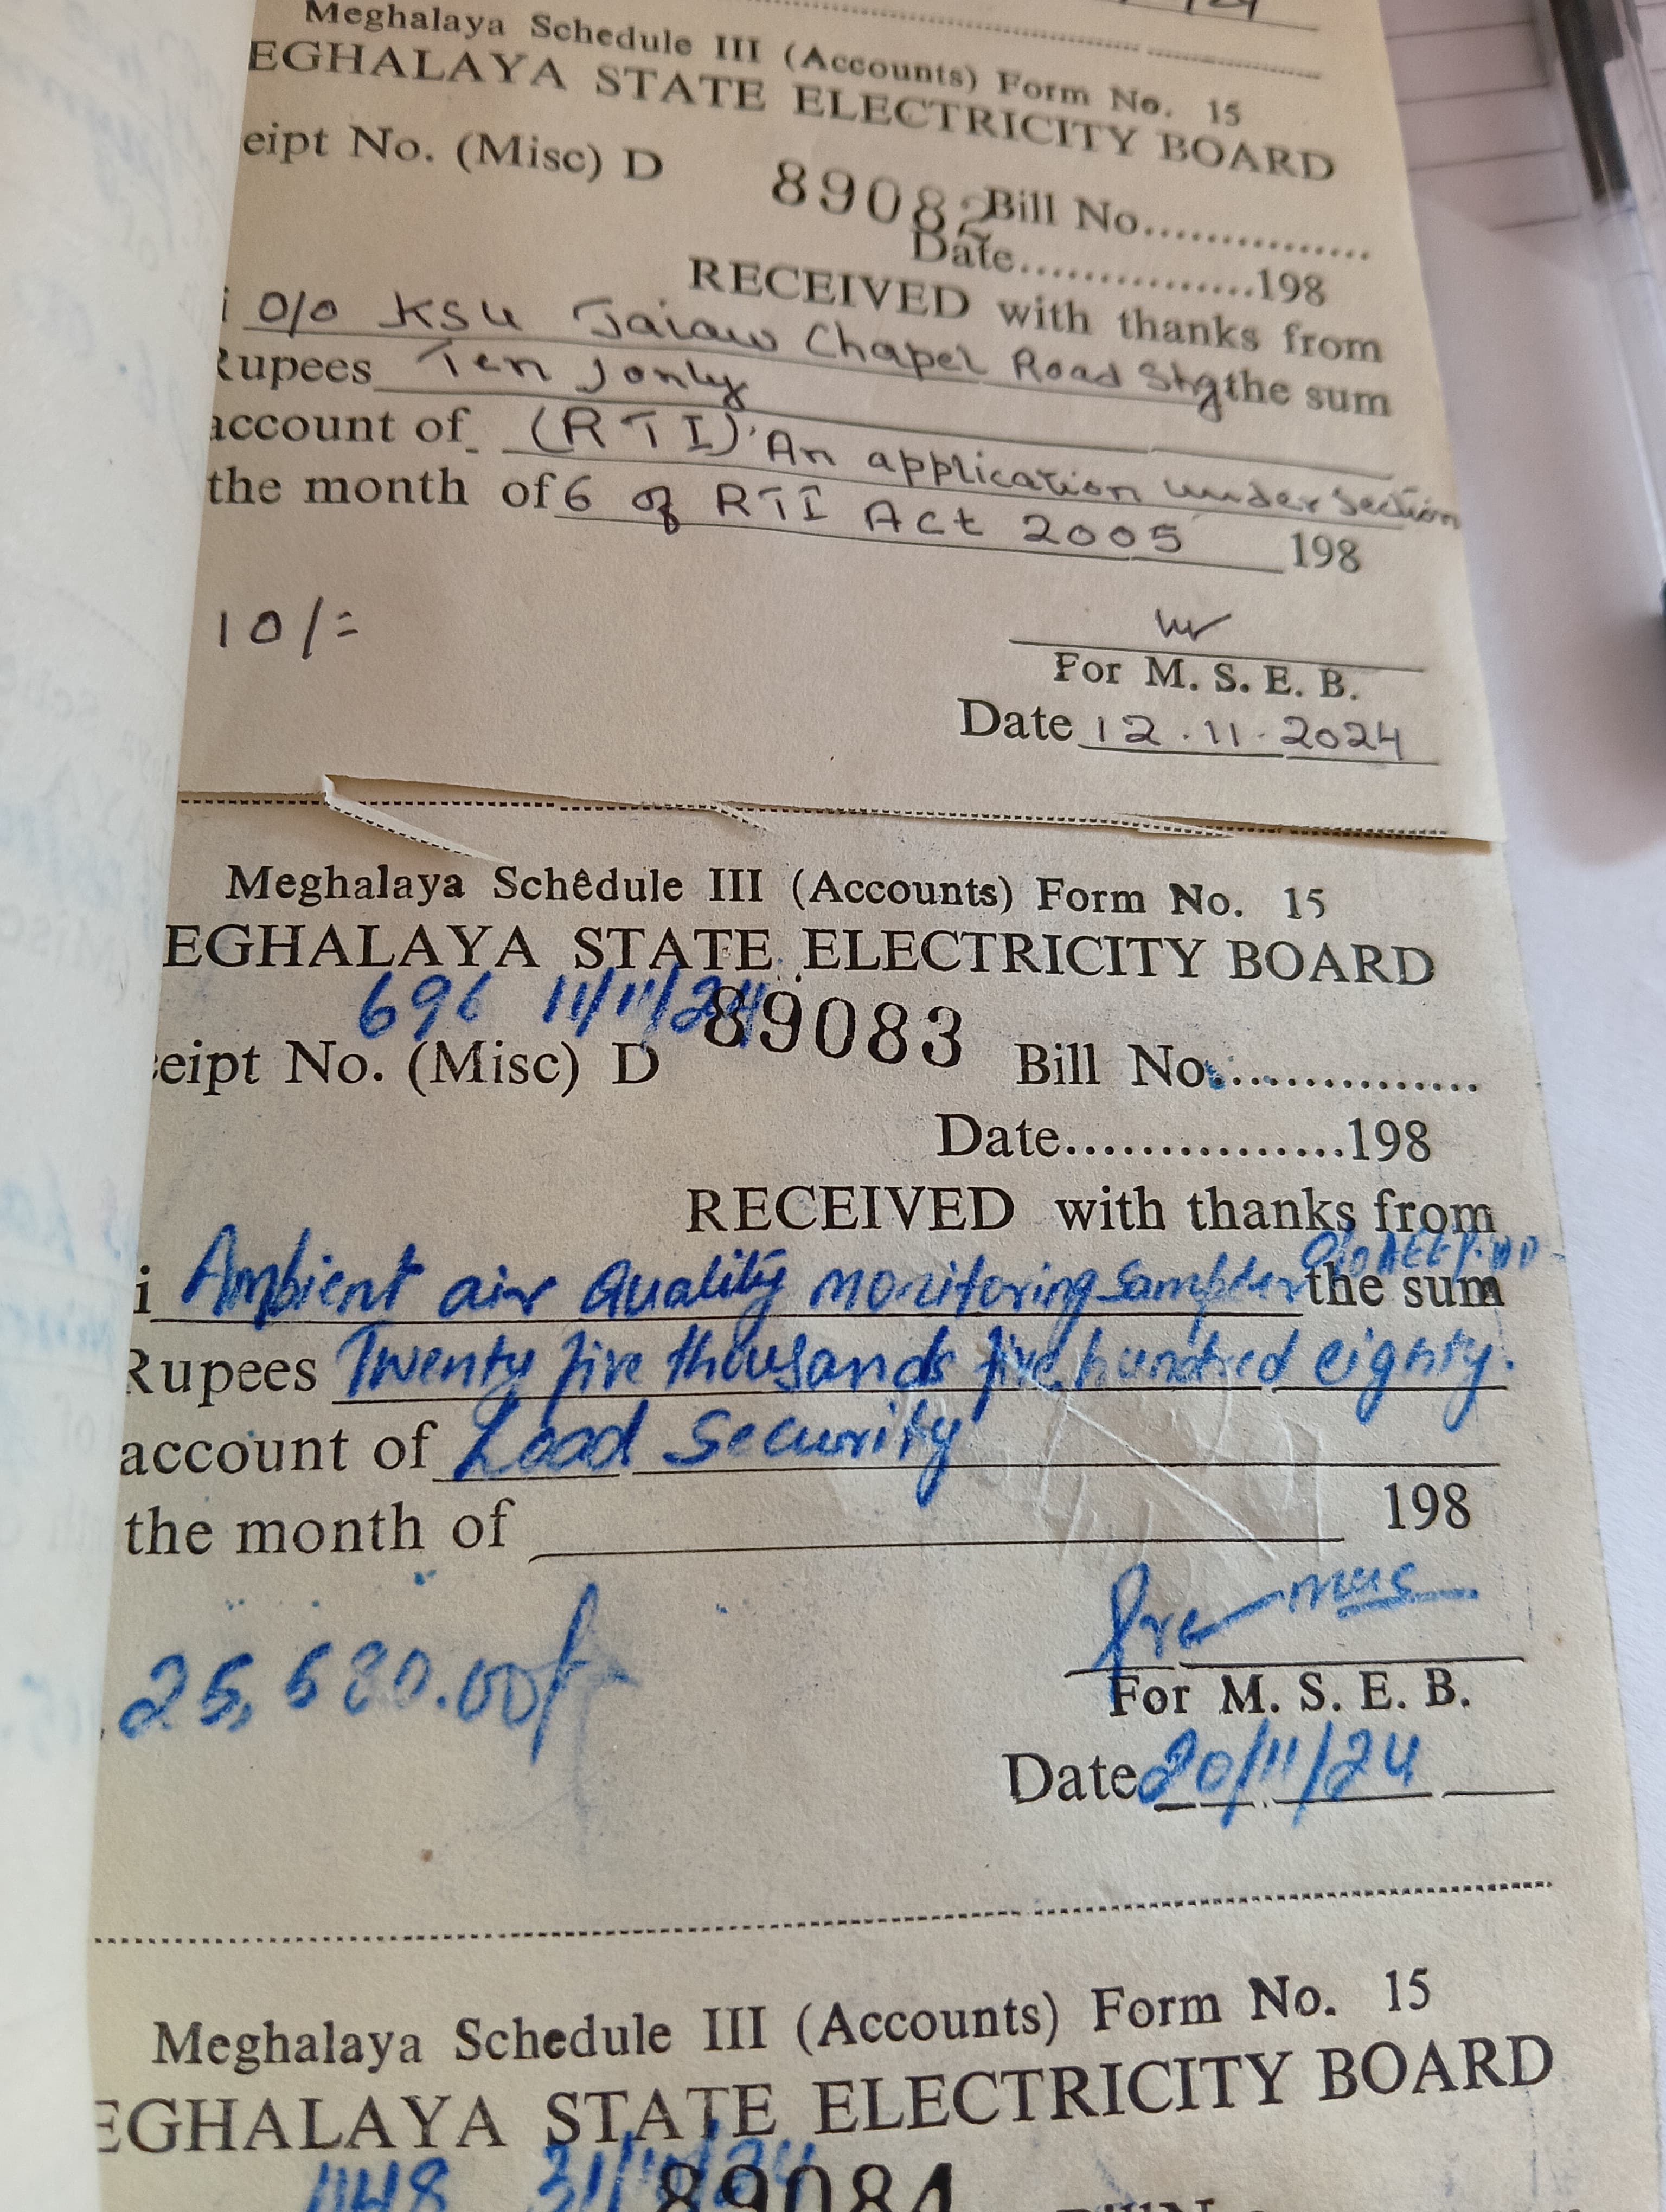 Meghalaya Schedule III (Accounts) Form No. 15
EGHALAYA STATE ELECTRICITY BOARD
eipt No. (Misc) D 89082 Bill No...............
Date...............198
RECEIVED with thanks from
i O/o KSU Jaiaw Chapel Road Shg the sum
Rupees Ten )only
account of (RTI) An application under Section
the month of 6 of RTI Act 2005 198
10/=
For M. S. E. B.
Date 12.11.2024
Meghalaya Schedule III (Accounts) Form No. 15
EGHALAYA STATE ELECTRICITY BOARD
696 11/11/24
eipt No. (Misc) D 89083 Bill No...............
Date...............198
RECEIVED with thanks from
i Ambient air Quality monitoring Sampler the sum
Rupees Twenty five thousands five hundred eighty.
account of Load Security
the month of 198
25,580.00/-
For M. S. E. B.
Date 20/11/24
Meghalaya Schedule III (Accounts) Form No. 15
EGHALAYA STATE ELECTRICITY BOARD
1148
89084